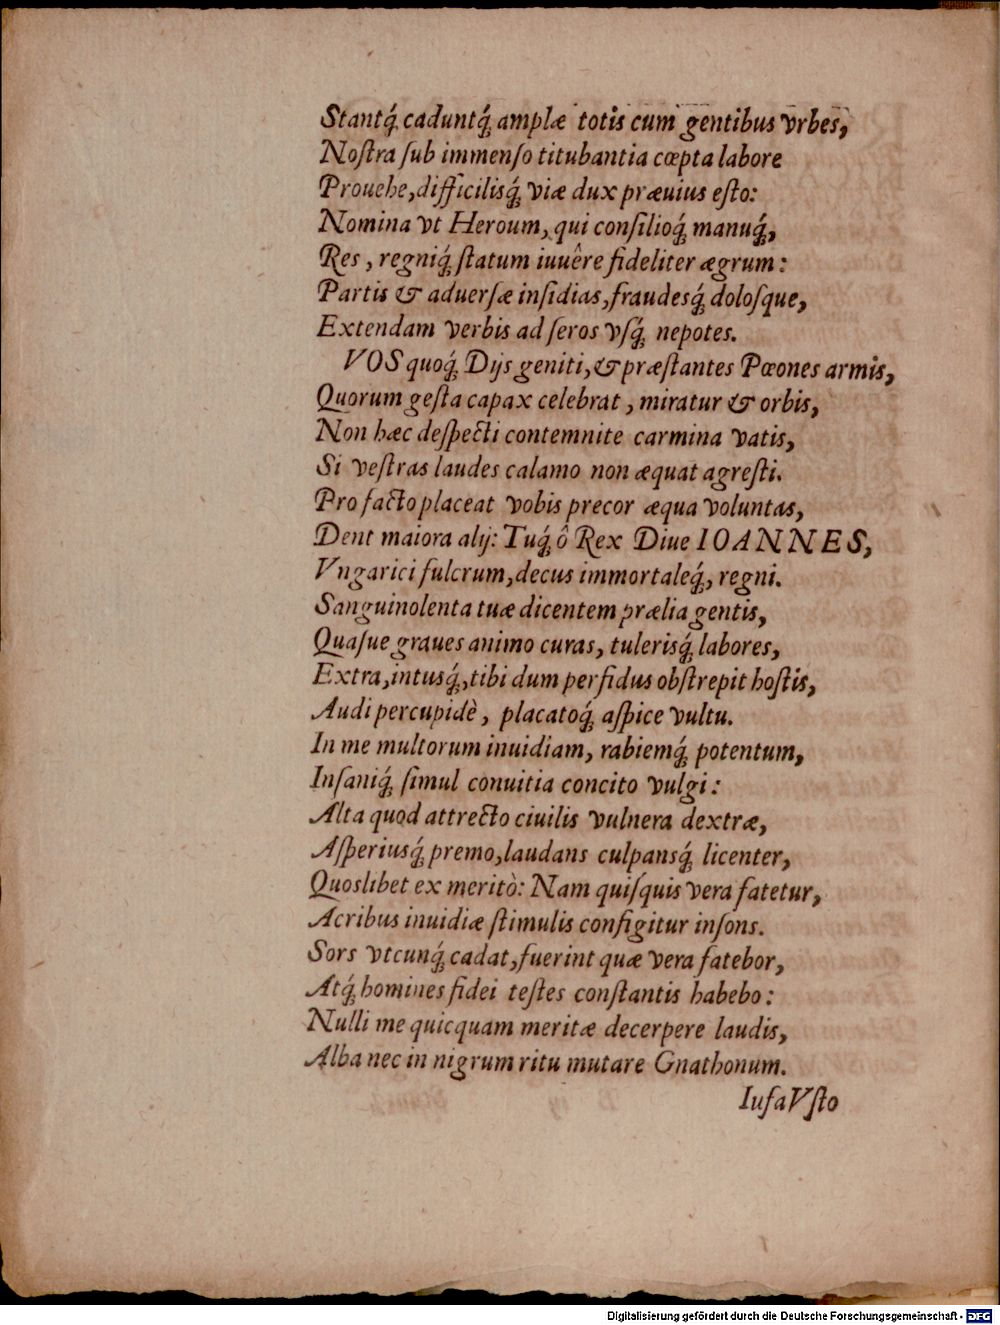 Stantq́; caduntq́; amplæ totis cum gentibus vrbes,
Noſtra ſub immenſo titubantia cœpta labore
Prouehe, difficilisq́; viæ dux præuius eſto:
Nomina vt Heroum, qui conſilioq́; manuq́;,
Res, regniq́; ſtatum iuuêre fideliter ægrum:
Partis & aduerſæ inſidias, fraudesq́; doloſque,
Extendam verbis ad ſeros vſq́; nepotes.
VOS quoq́; Dijs geniti, & præſtantes Pœones armis,
Quorum geſta capax celebrat, miratur & orbis,
Non hæc deſpecti contemnite carmina vatis,
Si veſtras laudes calamo non æquat agreſti.
Pro facto placeat vobis precor æqua voluntas,
Dent maiora alij: Tuq́; ô Rex Diue IOANNES,
Vngarici fulcrum, decus immortaleq́;, regni.
Sanguinolenta tuæ dicentem prælia gentis,
Quaſue graues animo curas, tulerisq́; labores,
Extra, intusq́;, tibi dum perfidus obſtrepit hoſtis,
Audi percupidè, placatoq́; aſpice vultu.
In me multorum inuidiam, rabiemq́; potentum,
Inſaniq́; ſimul conuitia concito vulgi:
Alta quod attrecto ciuilis vulnera dextræ,
Aſperiusq́; premo, laudans culpansq́; licenter,
Quoslibet ex meritò: Nam quiſquis vera fatetur,
Acribus inuidiæ ſtimulis configitur inſons.
Sors vtcunq́; cadat, fuerint quæ vera fatebor,
Atq́; homines fidei teſtes conſtantis habebo:
Nulli me quicquam meritæ decerpere laudis,
Alba nec in nigrum ritu mutare Gnathonum.
Iuſa Vſto
Digitalisierung gefördert durch die Deutsche Forschungsgemeinschaft - DFG